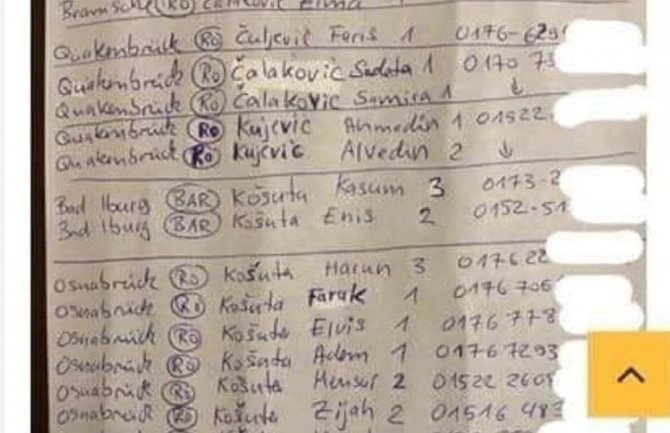 Bramsche RO Čalaković Elma 1
Quakenbrück RO Čuljević Faris 1 0176-629
Quakenbrück RO Čalaković Sadeta 1 0170 75
Quakenbrück RO Čalaković Samira 1 ↓
Quakenbrück RO Kujević Ahmedin 1 01522
Quakenbrück RO Kujević Alvedin 2 ↓
Bad Iburg BAR Košuta Kasum 3 0173-2
Bad Iburg BAR Košuta Enis 2 0152-51
Osnabrück RO Košuta Harun 3 0176 22
Osnabrück RO Košuta Faruk 1 0176 706
Osnabrück RO Košuta Elvis 1 0176 778
Osnabrück RO Košuta Adem 1 0176 7293
Osnabrück RO Košuta Mensur 2 01522 260
Osnabrück RO Košuta Zijah 2 01516 483